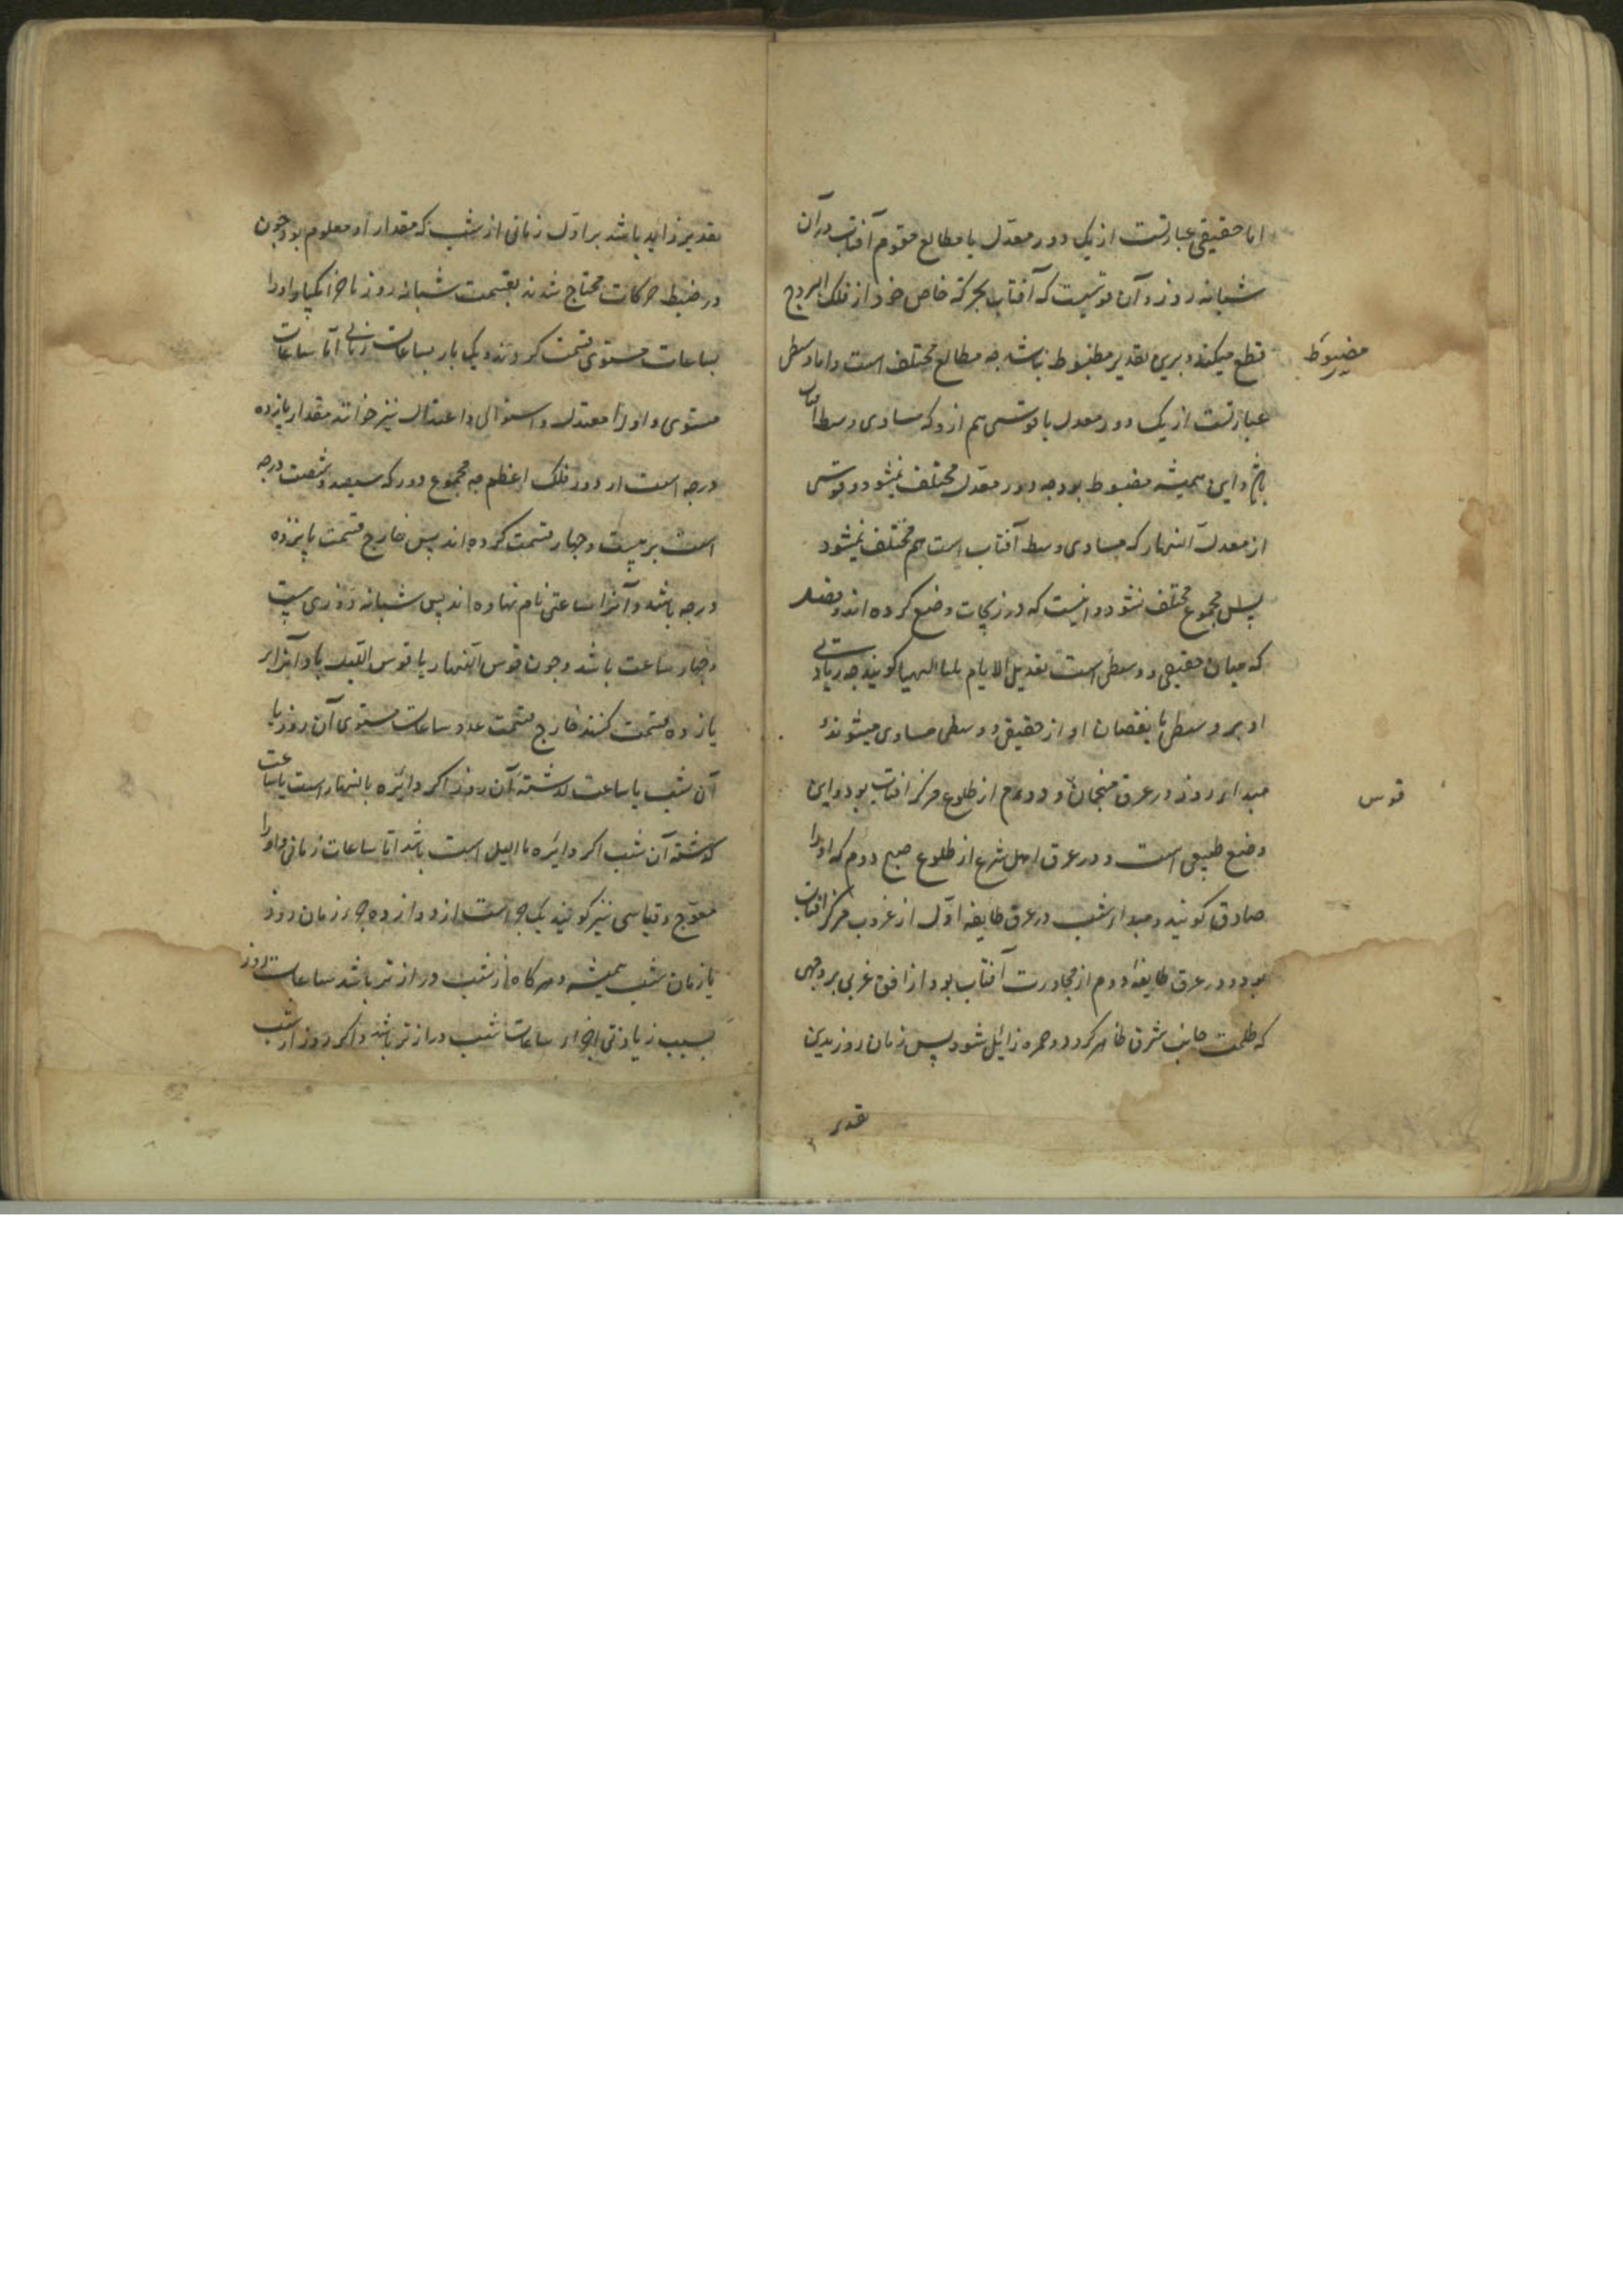 اما حقیقی عبارتست از یک دور معدل با مطالع مقوم آفتاب در آن
شبانه روز و آن قوسیست که آفتاب بحرکة خاص خود از فلک البروج
قطع میکند و برین تقدیر مظبوط نباشد چه مطالع مختلف است و اما وسطی
مضبوط
عبارتست از یک دور معدل با قوسی هم ازو که مساوی وسط آفتاب
باشد و این همیشه مضبوط بود چه دور معدل مختلف نمیشود و قوسی
از معدل النهار که مساوی وسط آفتاب است هم مختلف نمیشود
پس مجموع مختلف نشود و اینست که در زیجات وضع کرده اند و فضل
که میان حقیقی و وسطی است تعدیل الایام بلیالیها کویند چه زیادتی
او بر وسطی یا نقصان او از حقیقی و وسطی مساوی میشوند
مبداء روز در عرف منجمان و روم از طلوع مرکز افتاب بود و این
قوس
وضع طبیعی است و در عرف اهل شرع از طلوع صبح دوم که او را
صادق کویند و مبداء شب در عرف طایفه اول از غروب مرکز افتاب
بود و در عرف طایفه دوم از مجاورت آفتاب بود از افق غربی بر وجهی
که ظلمت جانب شرق ظاهر کردد و حمره زائل شود پس زمان روز بدین
تقدیر
تقدیر زاید باشد بر اول زمانی از شب که مقدار او معلوم بود و چون
در ضبط حرکات محتاج شدند بقسمت شبانه روز با جزا یکبار او را
بساعات مستوی قسمت کردند و یک بار بساعات زمانی اما ساعات
مستوی و او را معتدل و استوائی و اعتدال نیز خوانند مقدار پانزده
درجه است از دور فلک اعظم چه مجموع دور که سیصد و شصت درجه
است بر بیست و چهار قسمت کرده اند پس خارج قسمت پانزده
درجه باشد و آنرا ساعتی نام نهاده اند پس شبانه روزی بیست
و چهار ساعت باشد و چون قوس النهار یا قوس اللیل یا دائر را بر
پانزده قسمت کنند خارج قسمت عدد ساعات مستوی آن روز یا
آن شب یا ساعت گذشته آن روز اکر دائره بالنهار است یا ساعت
گذشته آن شب اکر دائره باللیل است باشد اما ساعات زمانی و او را
معوج و قیاسی نیز کویند یک جزء است از دوازده جزء زمان روز
یا زمان شب همیشه و هر کاه از شب دراز تر باشد ساعات روز
بسبب زیادتی اجزاء ساعات شب دراز تر باشد و اکر روز از شب